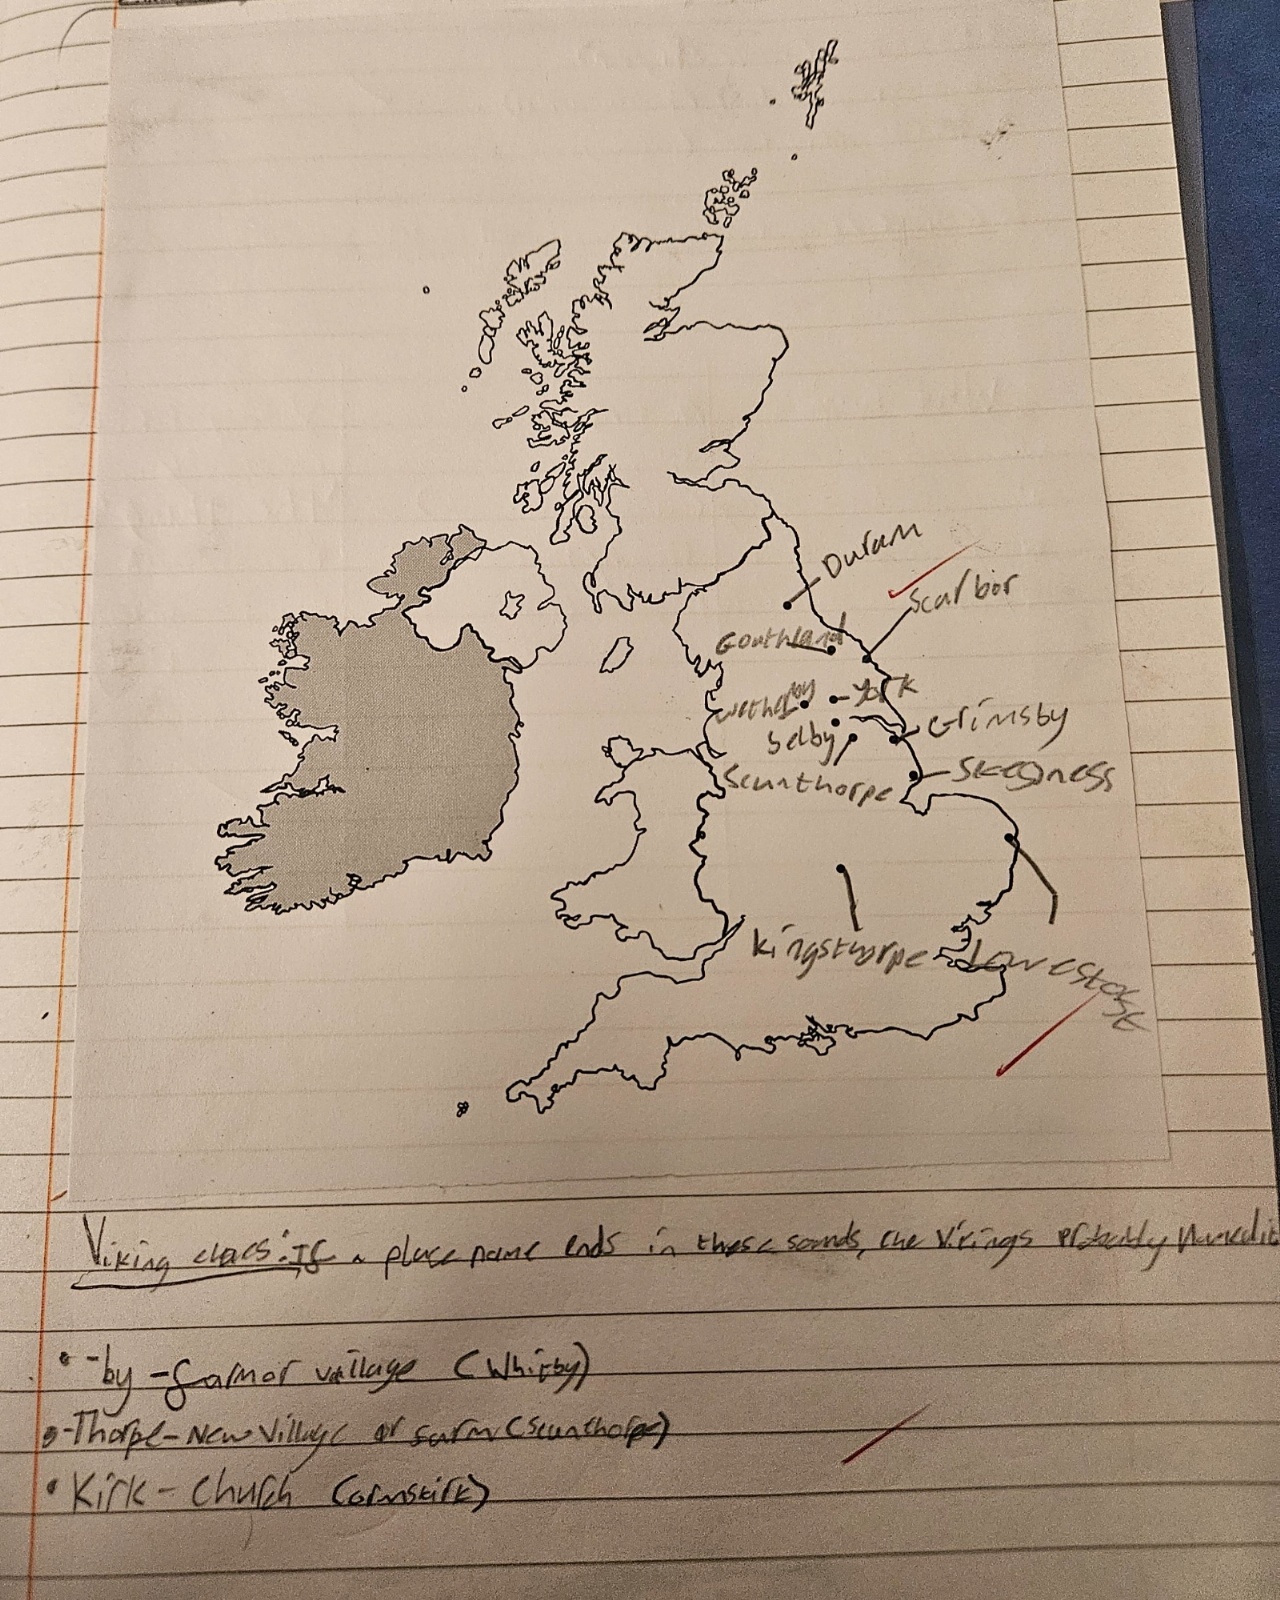 Duram
Scarbor
Gouthland
York
Wetherby
Selby
Grimsby
Scunthorpe
Skegness
Kingsthorpe
Lowestost
Viking clues: If a place name ends in these sounds, the Vikings probably named it
• -by - farmor village (Whitby)
• -Thorpe - New Village or farm (Scunthorpe)
• Kirk - Church (ormskirk)